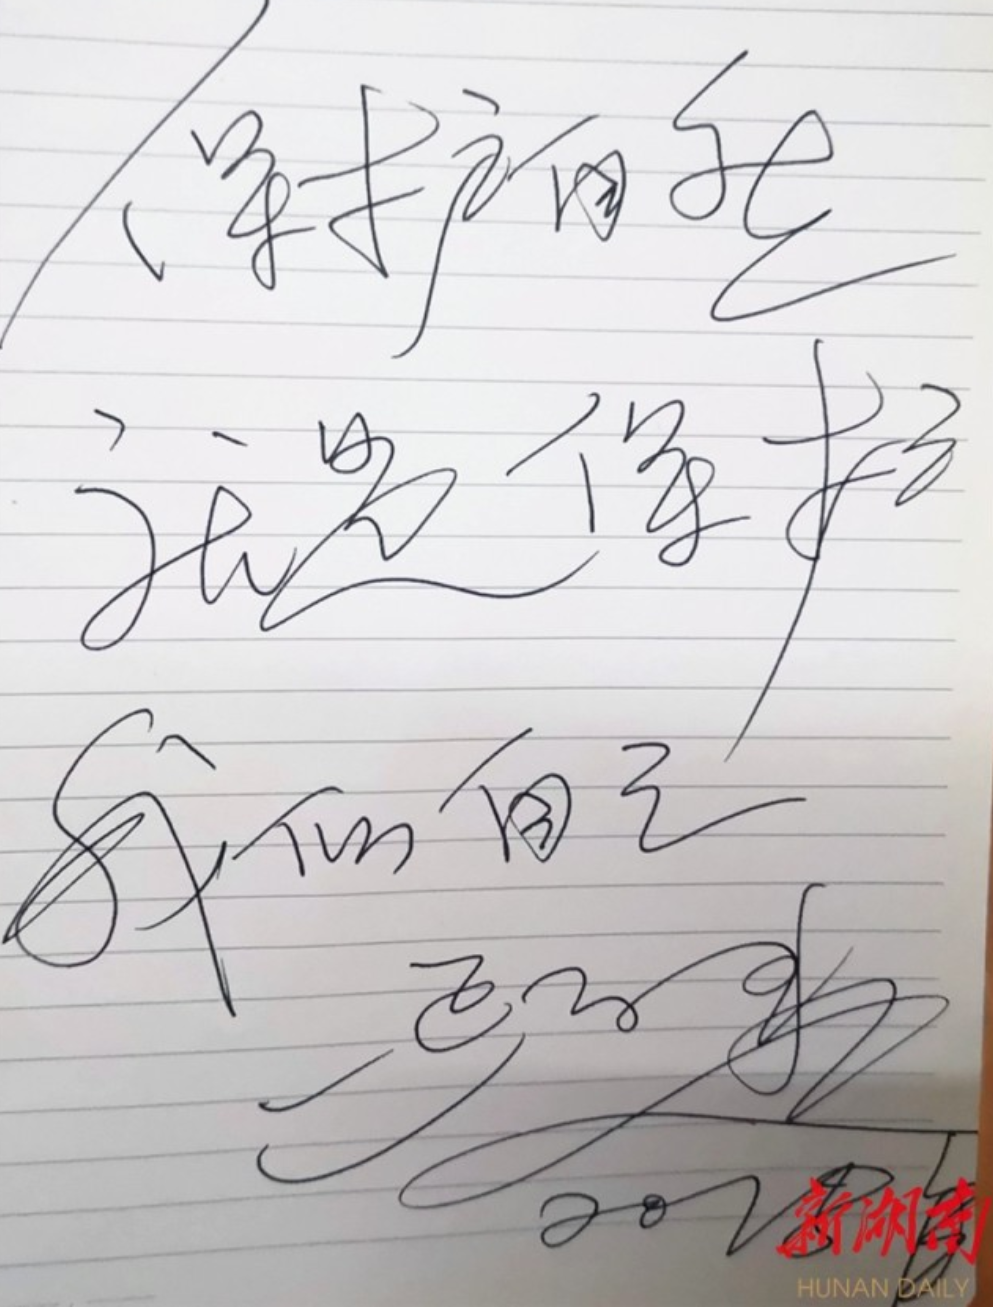 保护自然
就是保护
我们自己
新湖南
HUNAN DAILY